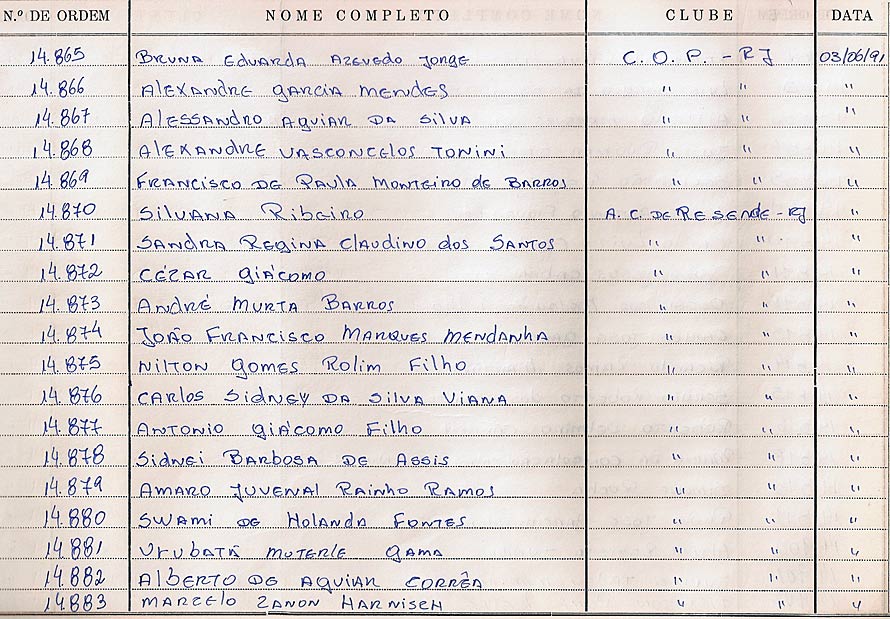 N.º DE ORDEM NOME COMPLETO CLUBE DATA
14.865 BRUNA EDUARDA AZEVEDO JORGE C. O. P. - RJ 03/06/91
14.866 ALEXANDRE GARCIA MENDES " " "
14.867 ALESSANDRO AGUIAR DA SILVA " " "
14.868 ALEXANDRE VASCONCELOS TONINI " " "
14.869 FRANCISCO DE PAULA MONTEIRO de BARROS " " "
14.870 SILVANA RIBEIRO A. C. DE RESENDE - RJ "
14.871 SANDRA REGINA CLAUDINO dos SANTOS " " "
14.872 CÉZAR GIÁCOMO " " "
14.873 ANDRÉ MURTA BARROS " " "
14.874 JOÃO FRANCISCO MARQUES MENDANHA " " "
14.875 NILTON GOMES ROLIM FILHO " " "
14.876 CARLOS SIDNEY DA SILVA VIANA " " "
14.877 ANTONIO GIÁCOMO FILHO " " "
14.878 SIDNEI BARBOSA DE ASSIS " " "
14.879 AMARO JUVENAL RAINHO RAMOS " " "
14.880 SWAMI DE HOLANDA FONTES " " "
14.881 URUBATÃ MUTERLE GAMA " " "
14.882 ALBERTO DE AGUIAR CORRÊA " " "
14.883 MARCELO ZANON HARNISCH " " "